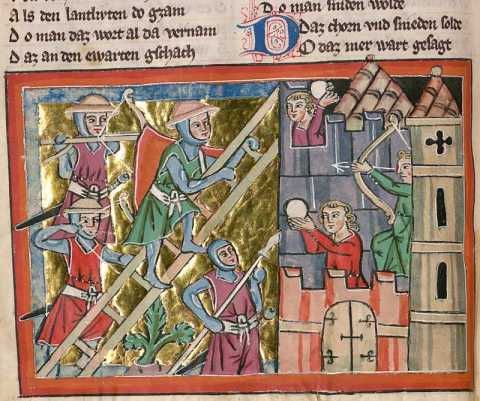 A ls den lantlivten do gzam
D o man daz wort al da vernam
D az an den ewarten gschach
D o man sniden wolde
D Daz chorn vnd sineden solde
D O daz mer wart gesagt